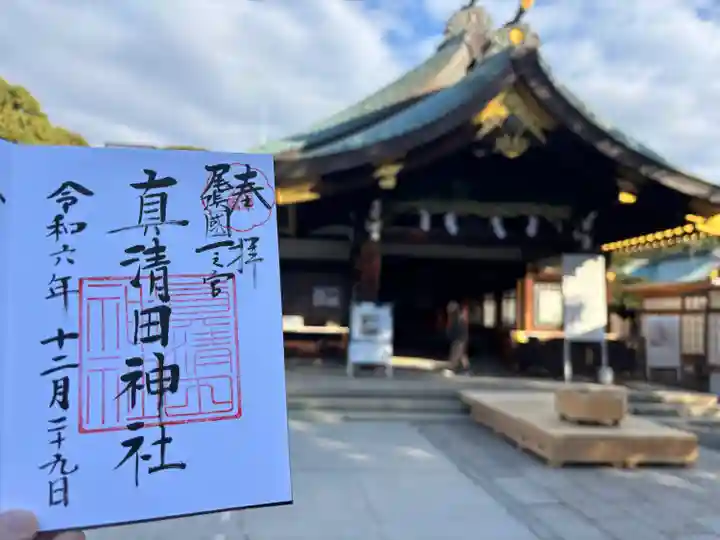 奉拝
尾張國一之宮
真清田神社
令和六年十二月二十九日